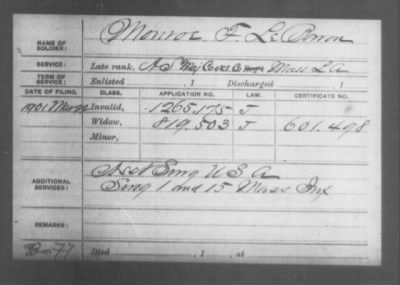 NAME OF SOLDIER: Monroe F. Le
SERVICE: Late rank, Mass L A
TERM OF SERVICE: Enlisted , 1 Discharged , 1
DATE OF FILING. CLASS. APPLICATION NO. LAW. CERTIFICATE NO.
1901 Invalid, 1265.175 J
Widow, 819.503 J 601.498
Minor,
Asst Surg U S A
ADDITIONAL SERVICES: Surg 1 and 15 Mass Inf
REMARKS:
77 Died , 1 , at